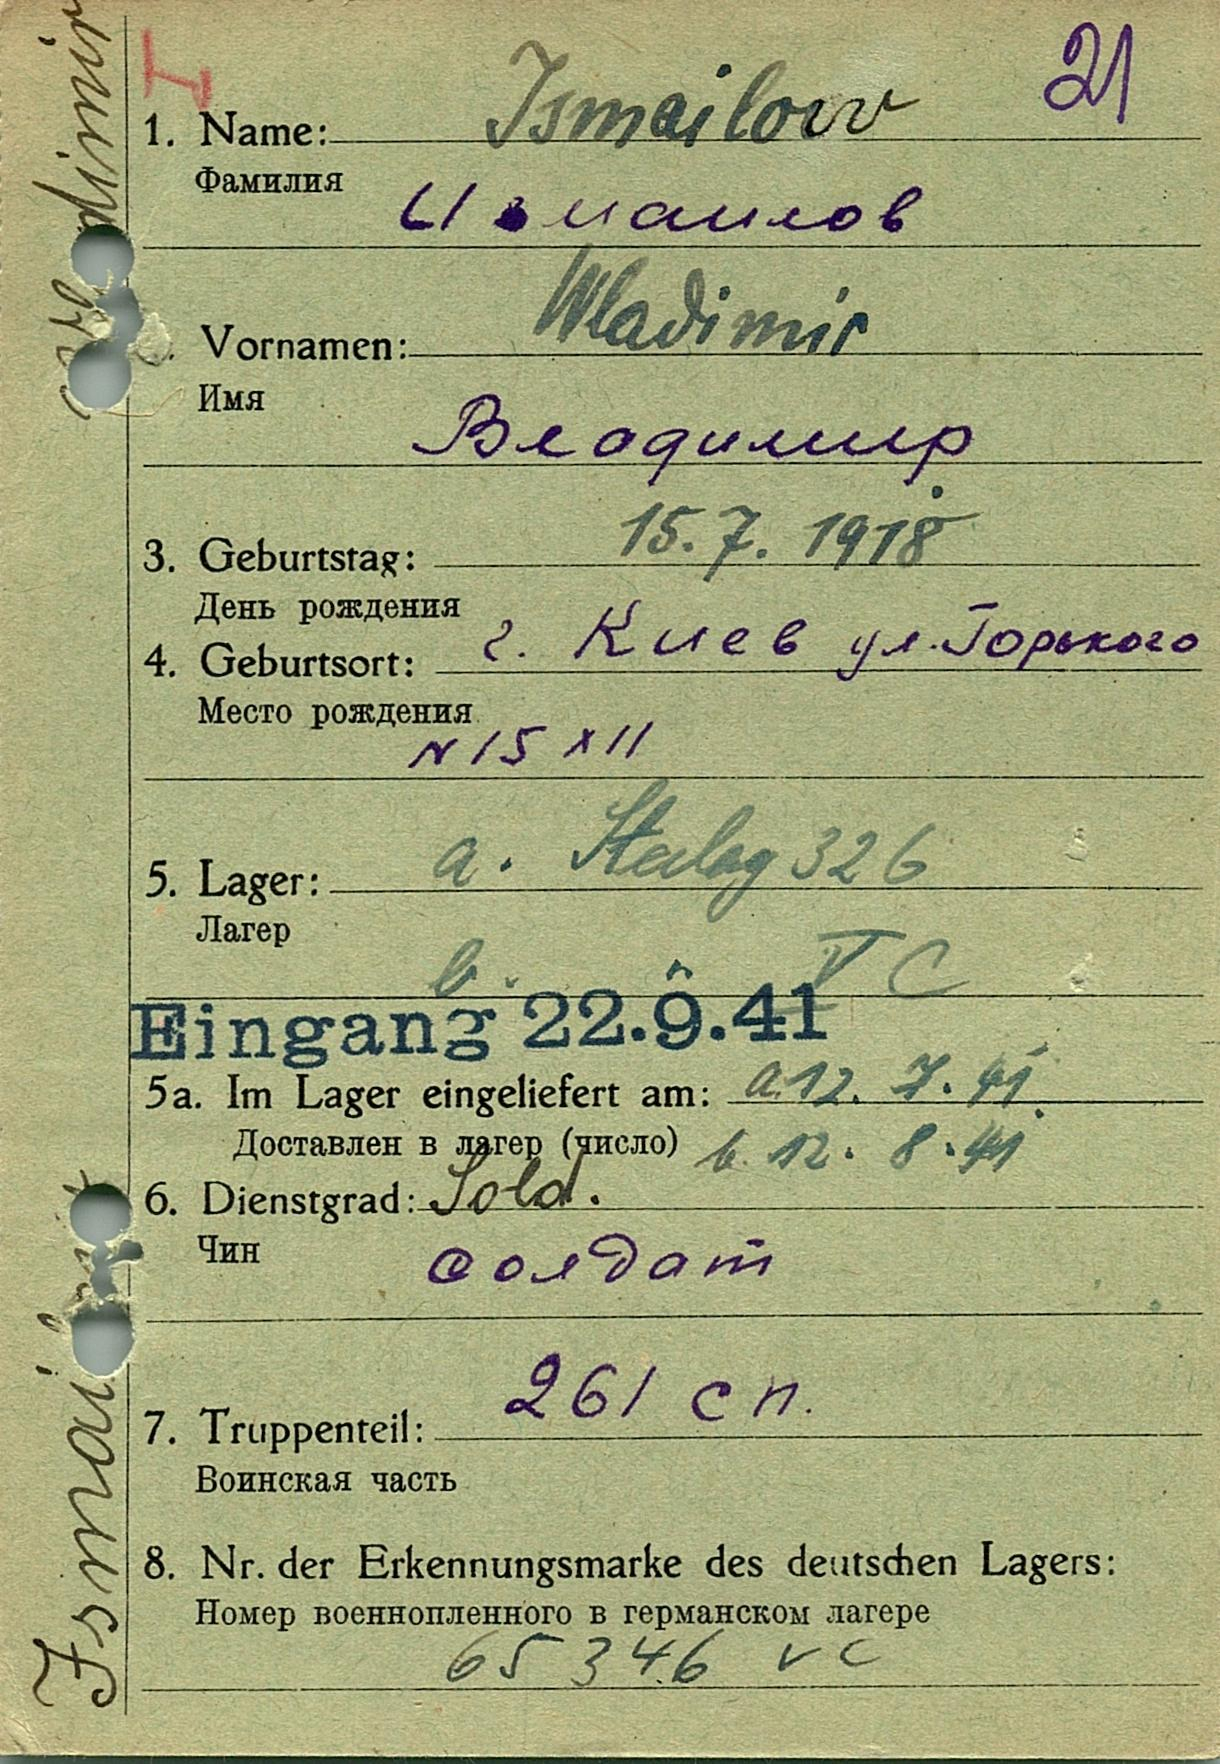 I 21
1. Name: Ismailow
Фамилия
Измаилов
Vornamen: Wladimir
Имя
Владимир
3. Geburtstag: 15.7. 1918
День рождения
4. Geburtsort: г. Киев ул. Горького
Место рождения
N 15 XII
5. Lager: a. Stalag 326
Лагер
b. V C
Eingang 22.9.41
5a. Im Lager eingeliefert am: a. 12. 7. 41.
Доставлен в лагер (число) b. 12. 8. 41
6. Dienstgrad: Sold.
Чин
солдат
7. Truppenteil: 261 сп.
Воинская часть
8. Nr. der Erkennungsmarke des deutschen Lagers:
Номер военнопленного в германском лагере
65 346 V C